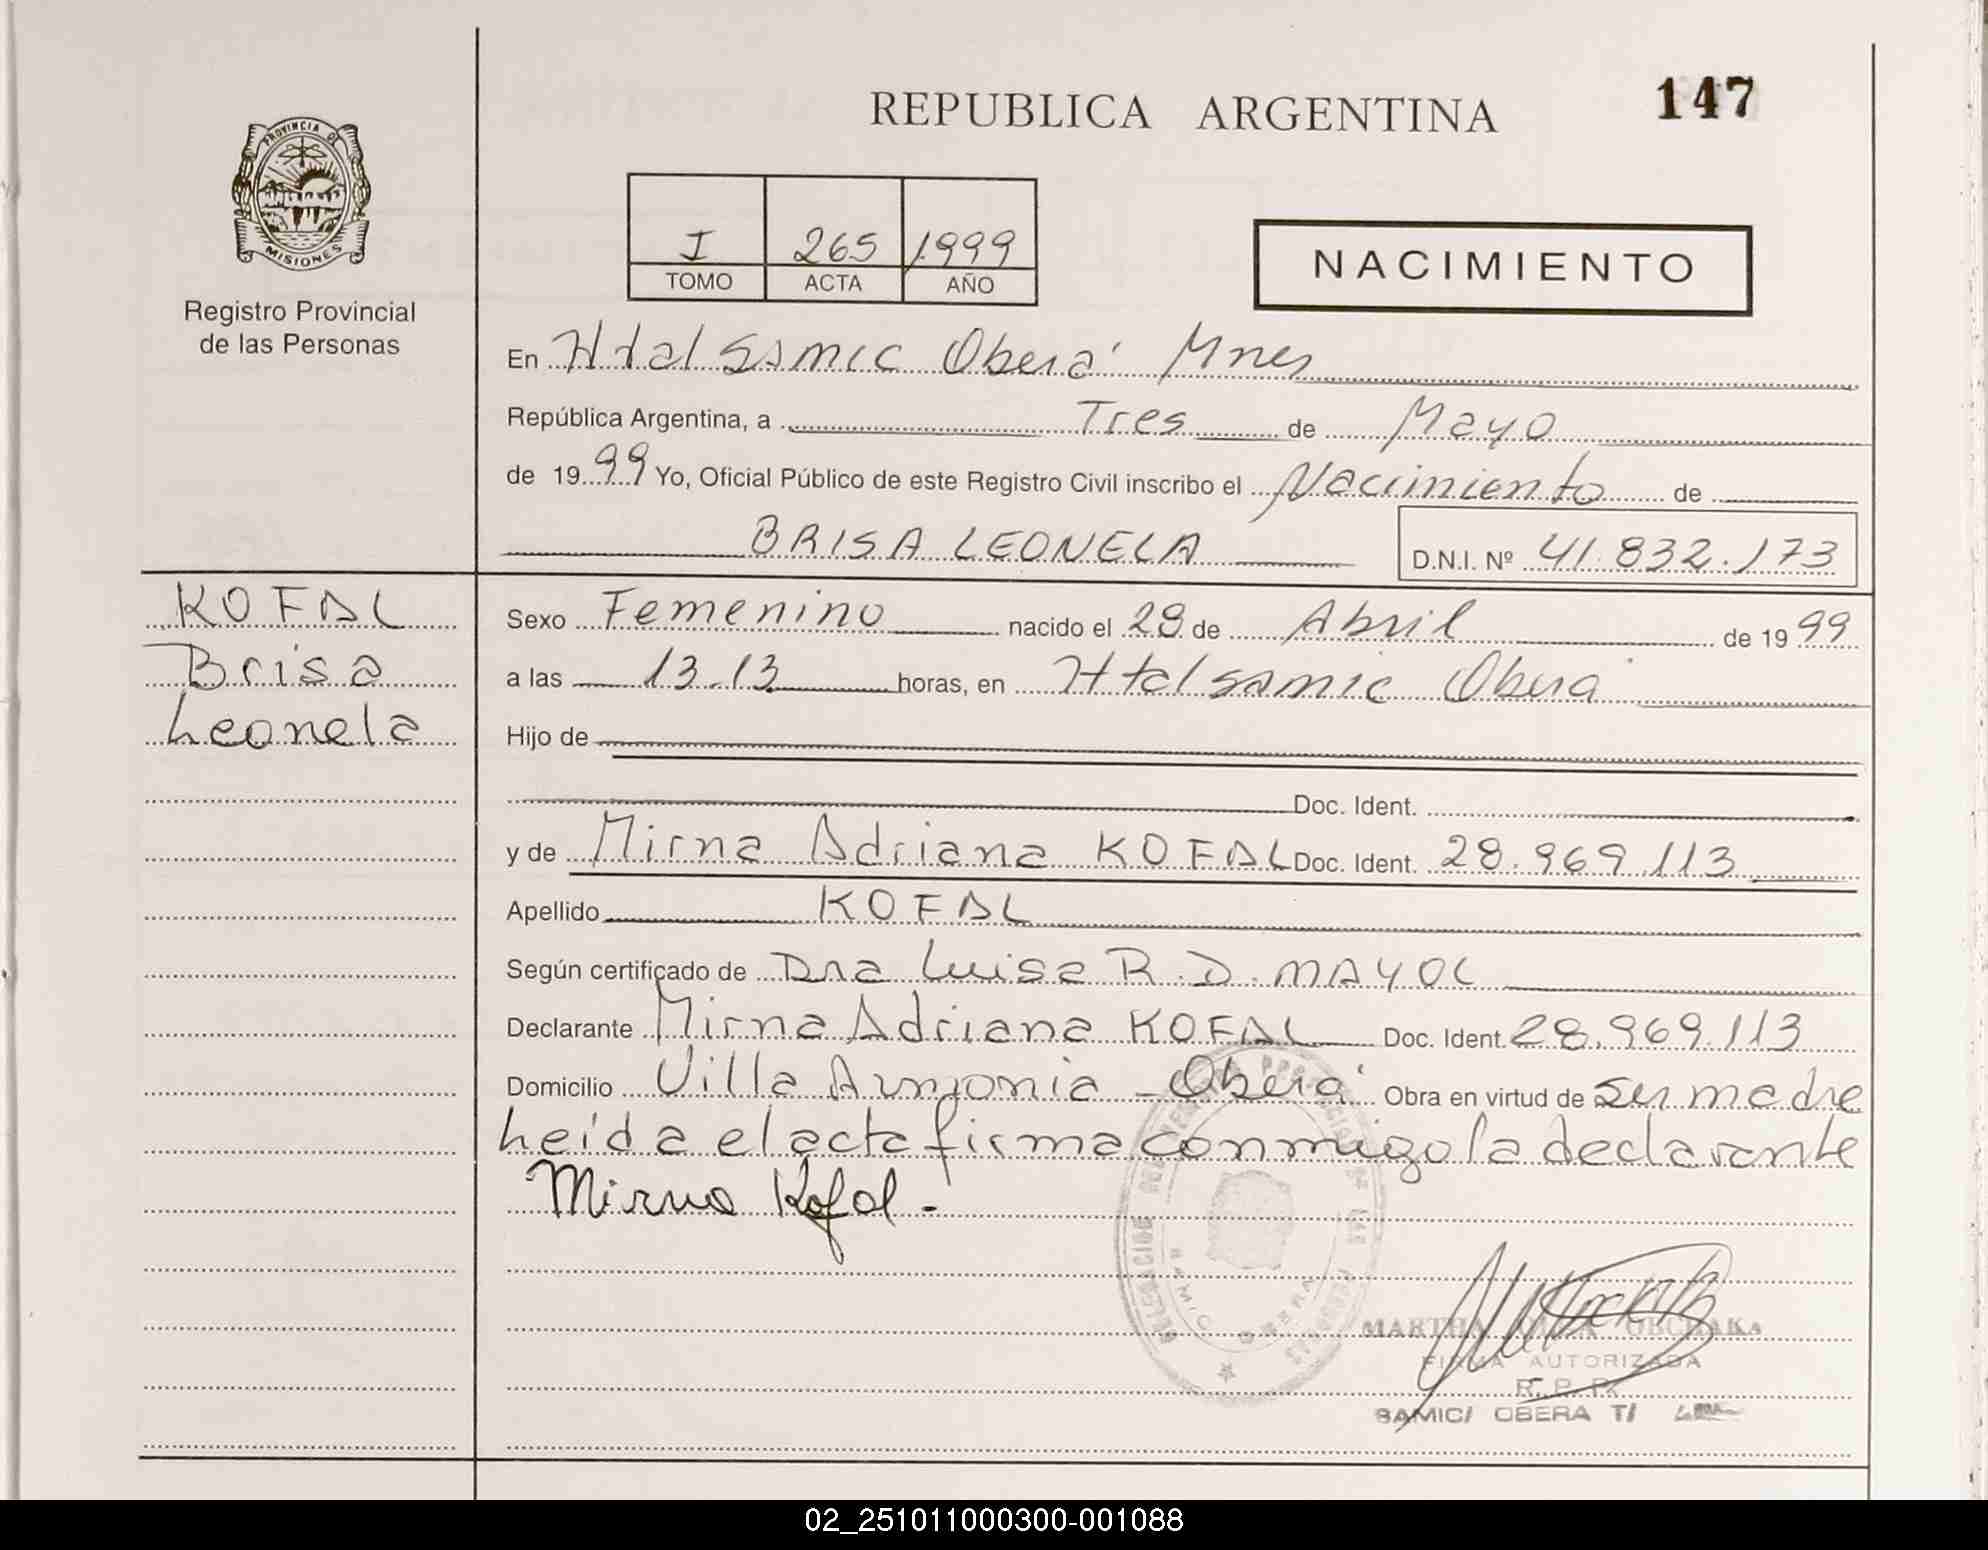 147
REPUBLICA ARGENTINA
PROVINCIA DE
MISIONES
Registro Provincial
de las Personas
I 265 1.999
TOMO ACTA AÑO
NACIMIENTO
En Htal SAMIC Oberá Mnes
República Argentina, a Tres de Mayo
de 1999 Yo, Oficial Público de este Registro Civil inscribo el Nacimiento de
BRISA LEONELA D.N.I. Nº 41.832.173
KOFAL
Brisa
Leonela
Sexo Femenino nacido el 29 de Abril de 1999
a las 13.13 horas, en Htal SAMIC Oberá
Hijo de
Doc. Ident.
y de Mirna Adriana KOFAL Doc. Ident. 28.969.113
Apellido KOFAL
Según certificado de Dra Luisa R.D. MAYOL
Declarante Mirna Adriana KOFAL Doc. Ident. 28.969.113
Domicilio Villa Armonia - Oberá Obra en virtud de ser madre
Leída el acta firma conmigo la declarante
Mirna Kofal.-
MARTHA OBCHAKA
FIRMA AUTORIZADA
R.P.P.
SAMIC/ OBERA T/
02_251011000300-001088